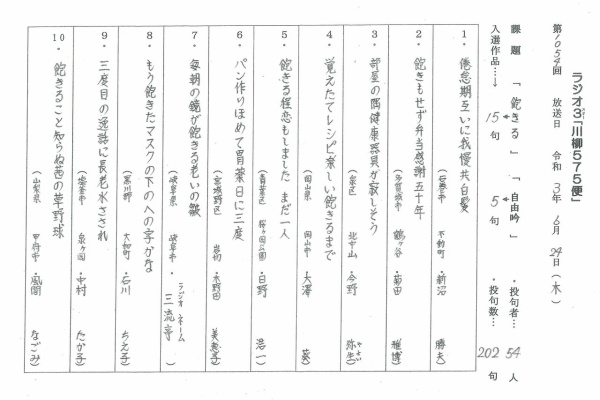 ラジオ3「川柳575便」
第1054回 放送日 令和3年6月24日(木)
課題 「飽きる」 「自由吟」 ・投句者… 54人
入選作品…↓ 15句 5句 ・投句数… 202句
1・倦怠期互いに我慢共白髪
(石巻市 不動町・新沼 勝夫)
2・飽きもせず弁当感謝五十年
(多賀城市 鶴ヶ谷・菊田 雅博)
3・部屋の隅健康器具が寂しそう
(泉区 北中山・今野 弥生)
やよい
4・覚えたてレシピ楽しい飽きるまで
(岡山県 岡山市・大澤 葵)
5・飽きる程恋もしました まだ一人
(青葉区 桜ヶ岡公園・日野 浩一)
6・パン作りほめて胃薬日に三度
(宮城野区 岩切・木野田 美恵子)
7・毎朝の鏡が飽きる老いの皺
(岐阜県 岐阜市・ラジオネーム 三流亭)
8・もう飽きたマスクの下のへの字かな
(黒川郡 大和町・石川 ちえ子)
9・三度目の逸話に長老水さされ
(塩釜市 泉ヶ岡・中村 たか子)
10・飽きること知らぬ茜の草野球
(山梨県 甲府市・風間 なごみ)